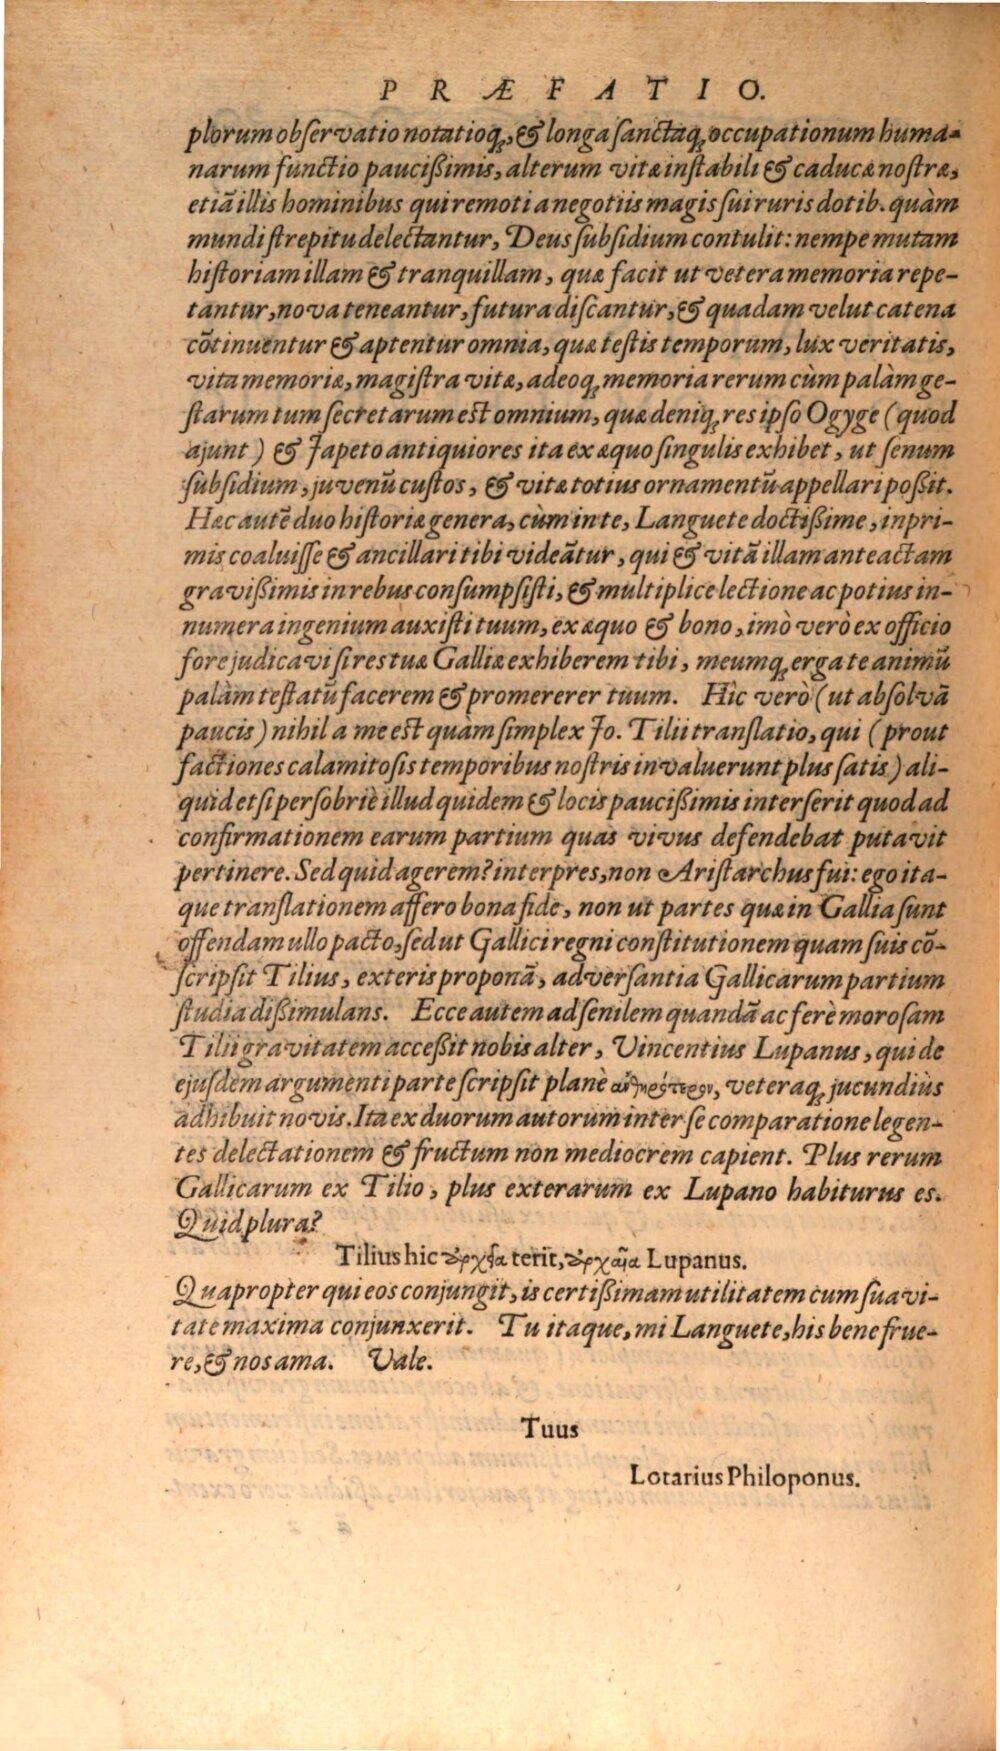 PRÆFATIO.
plorum observatio notatioq́;, & longa sanctaq́; occupationum huma-
narum functio paucißimis, alterum vitæ instabili & caducæ nostræ,
etiā illis hominibus qui remoti a negotiis magis sui ruris dotib. quàm
mundi strepitu delectantur, Deus subsidium contulit: nempe mutam
historiam illam & tranquillam, quæ facit ut vetera memoria repe-
tantur, nova teneantur, futura discantur, & quadam velut catena
cōtinuentur & aptentur omnia, quæ testis temporum, lux veritatis,
vita memoriæ, magistra vitæ, adeoq́; memoria rerum cùm palàm ge-
starum tum secretarum est omnium, quæ deniq́; res ipso Ogyge (quod
ajunt) & Japeto antiquiores ita ex æquo singulis exhibet, ut senum
subsidium, juvenū custos, & vitæ totius ornamentū appellari poßit.
Hæc autē duo historiæ genera, cùm in te, Languete doctißime, inpri-
mis coaluisse & ancillari tibi videātur, qui & vitā illam anteactam
gravißimis in rebus consumpsisti, & multiplice lectione ac potius in-
numera ingenium auxisti tuum, ex æquo & bono, imò verò ex officio
fore judicavi si res tuæ Galliæ exhiberem tibi, meumq́; erga te animū
palàm testatū facerem & promererer tuum. Hîc verò (ut absolvā
paucis) nihil a me est quàm simplex Jo. Tilii translatio, qui (prout
factiones calamitosis temporibus nostris invaluerunt plus satis) ali-
quid etsi persobriè illud quidem & locis paucißimis interserit quod ad
confirmationem earum partium quas vivus defendebat putavit
pertinere. Sed quid agerem? interpres, non Aristarchus fui: ego ita-
que translationem affero bona fide, non ut partes quæ in Gallia sunt
offendam ullo pacto, sed ut Gallici regni constitutionem quam suis cō-
scripsit Tilius, exteris proponā, adversantia Gallicarum partium
studia dißimulans. Ecce autem ad senilem quandā ac ferè morosam
Tilii gravitatem acceßit nobis alter, Vincentius Lupanus, qui de
ejusdem argumenti parte scripsit planè ἀνθηρότερον, veteraq́; jucundiùs
adhibuit novis. Ita ex duorum autorum inter se comparatione legen-
tes delectationem & fructum non mediocrem capient. Plus rerum
Gallicarum ex Tilio, plus exterarum ex Lupano habiturus es.
Quid plura?
Tilius hic ἀρχεῖα terit, ἀρχαῖα Lupanus.
Quapropter qui eos conjungit, is certißimam utilitatem cum suavi-
tate maxima conjunxerit. Tu itaque, mi Languete, his bene frue-
re, & nos ama. Vale.
Tuus
Lotarius Philoponus.